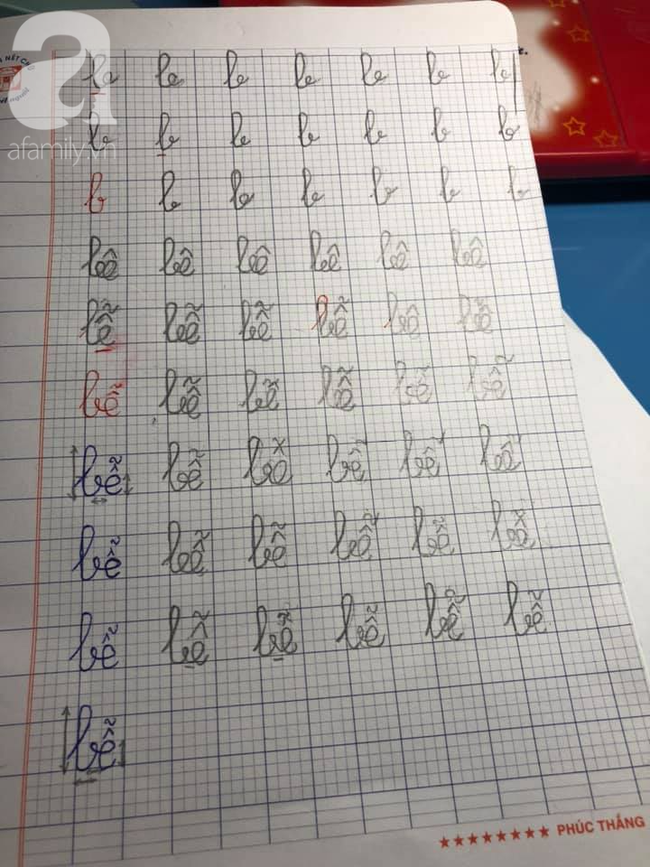 a
afamily.vn
b b b b b b b
b b b b b b b
b b b b b b b
bê bê bê bê bê bê
bễ bễ bễ bễ bễ bễ
bễ bễ bễ bễ bễ bễ
bễ bễ bễ bễ bễ bễ
bễ bễ bễ bễ bễ bễ
bễ bễ bễ bễ bễ bễ
bễ
★★★★★★★★ PHÚC THẮNG